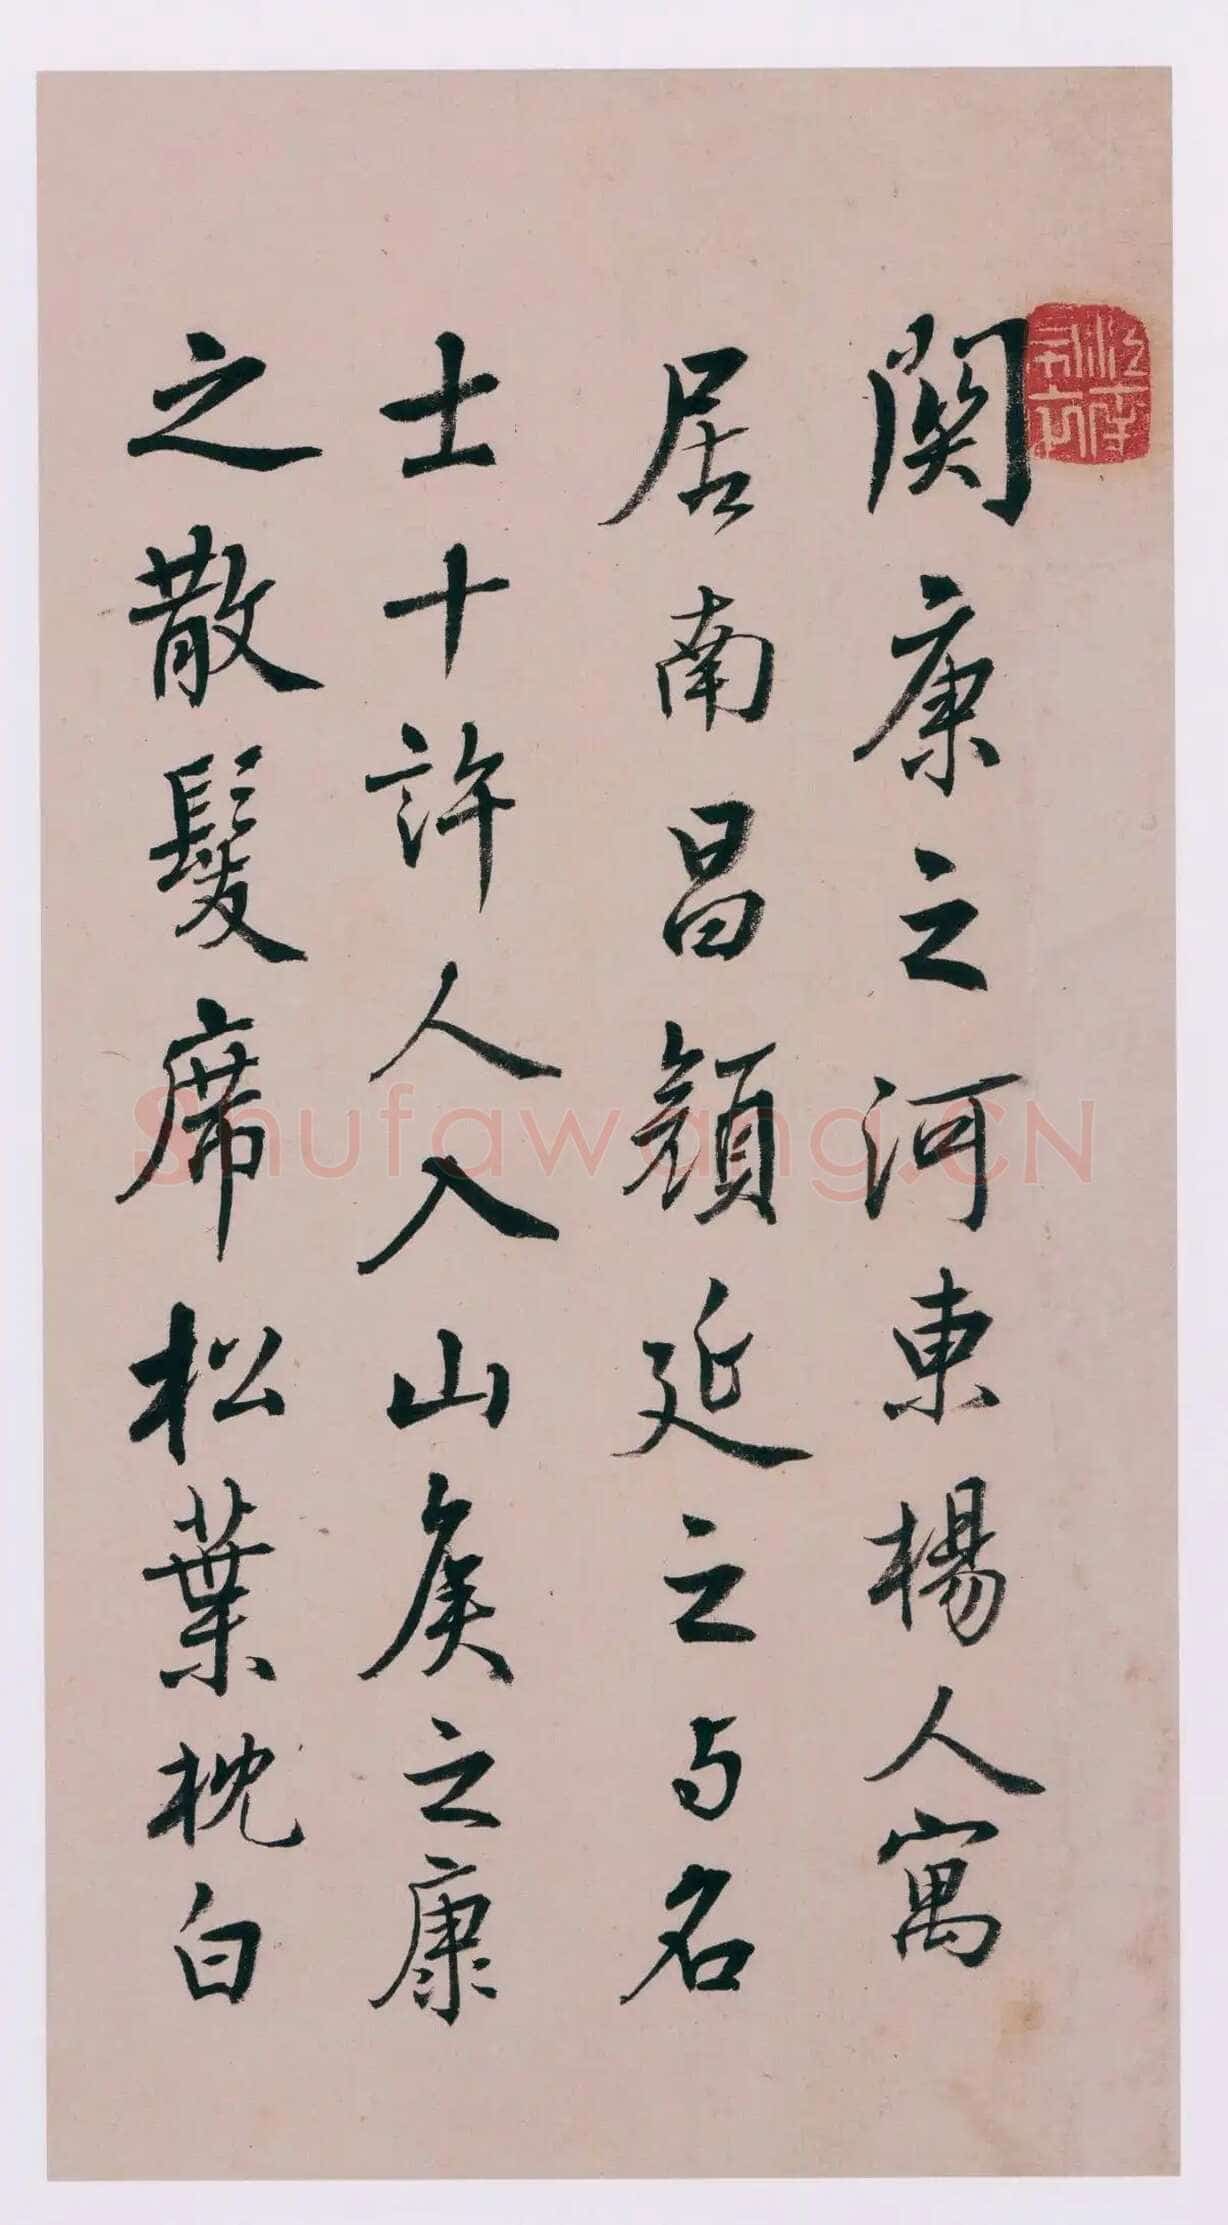 關康之河東楊人寓
居南昌顏延之与名
士十許人入山矦之康
之散髮席松葉枕白
Shufawang.CN